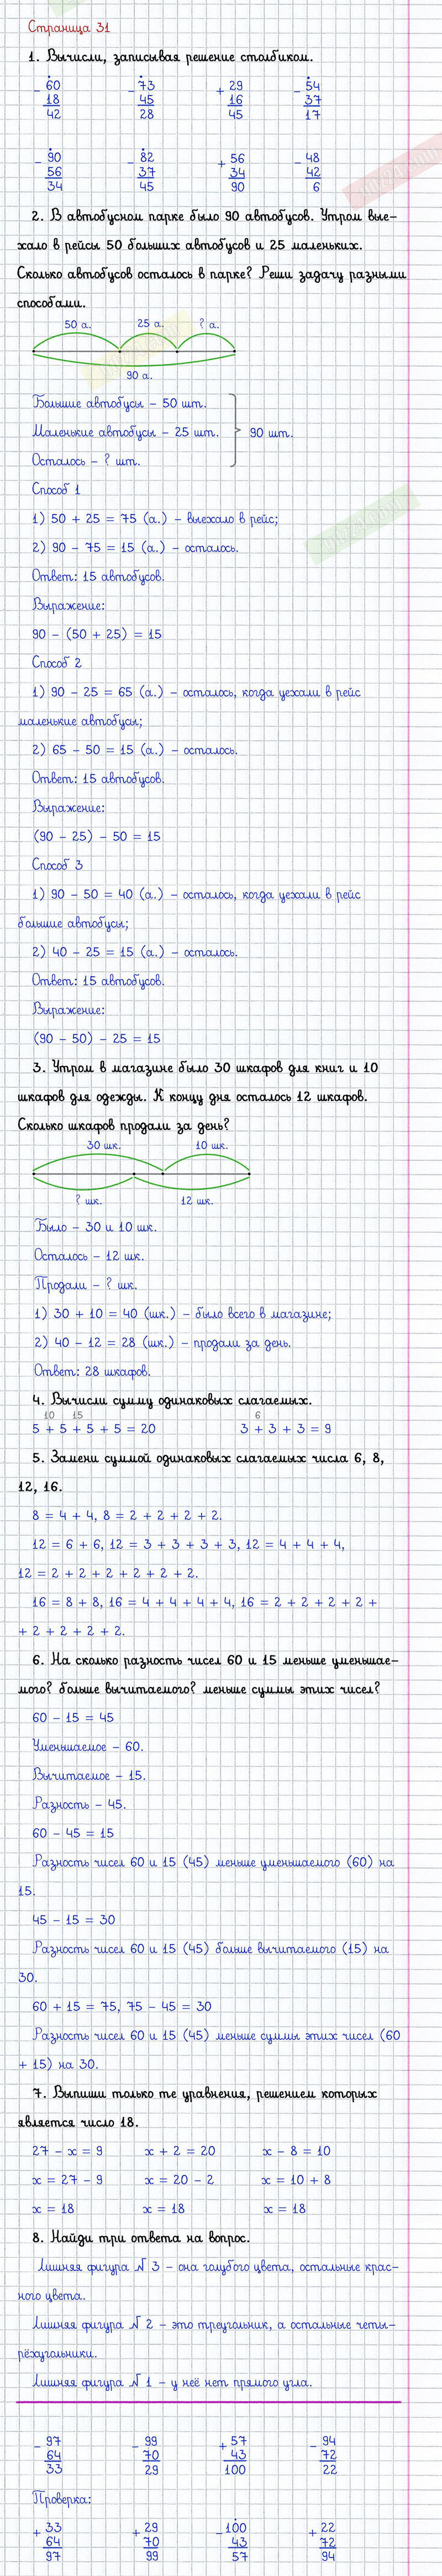 Страница 31
1. Вычисли, записывая решение столбиком.
- 60 - 73 + 29 - 54
18 45 16 37
42 28 45 17
- 90 - 82 + 56 - 48
56 37 34 42
34 45 90 6
2. В автобусном парке было 90 автобусов. Утром вые-
хало в рейсы 50 больших автобусов и 25 маленьких.
Сколько автобусов осталось в парке? Реши задачу разными
способами.
50 а. 25 а. ? а.
90 а.
Большие автобусы – 50 шт.
Маленькие автобусы – 25 шт. 90 шт.
Осталось – ? шт.
Способ 1
1) 50 + 25 = 75 (а.) – выехало в рейс;
2) 90 – 75 = 15 (а.) – осталось.
Ответ: 15 автобусов.
Выражение:
90 – (50 + 25) = 15
Способ 2
1) 90 – 25 = 65 (а.) – осталось, когда уехали в рейс
маленькие автобусы;
2) 65 – 50 = 15 (а.) – осталось.
Ответ: 15 автобусов.
Выражение:
(90 – 25) – 50 = 15
Способ 3
1) 90 – 50 = 40 (а.) – осталось, когда уехали в рейс
большие автобусы;
2) 40 – 25 = 15 (а.) – осталось.
Ответ: 15 автобусов.
Выражение:
(90 – 50) – 25 = 15
3. Утром в магазине было 30 шкафов для книг и 10
шкафов для одежды. К концу дня осталось 12 шкафов.
Сколько шкафов продали за день?
30 шк. 10 шк.
? шк. 12 шк.
Было – 30 и 10 шк.
Осталось – 12 шк.
Продали – ? шк.
1) 30 + 10 = 40 (шк.) – было всего в магазине;
2) 40 – 12 = 28 (шк.) – продали за день.
Ответ: 28 шкафов.
4. Вычисли сумму одинаковых слагаемых.
10 15 6
5 + 5 + 5 + 5 = 20 3 + 3 + 3 = 9
5. Замени суммой одинаковых слагаемых числа 6, 8,
12, 16.
8 = 4 + 4, 8 = 2 + 2 + 2 + 2.
12 = 6 + 6, 12 = 3 + 3 + 3 + 3, 12 = 4 + 4 + 4,
12 = 2 + 2 + 2 + 2 + 2 + 2.
16 = 8 + 8, 16 = 4 + 4 + 4 + 4, 16 = 2 + 2 + 2 + 2 +
+ 2 + 2 + 2 + 2.
6. На сколько разность чисел 60 и 15 меньше уменьшае-
мого? больше вычитаемого? меньше суммы этих чисел?
60 – 15 = 45
Уменьшаемое – 60.
Вычитаемое – 15.
Разность – 45.
60 – 45 = 15
Разность чисел 60 и 15 (45) меньше уменьшаемого (60) на
15.
45 – 15 = 30
Разность чисел 60 и 15 (45) больше вычитаемого (15) на
30.
60 + 15 = 75, 75 – 45 = 30
Разность чисел 60 и 15 (45) меньше суммы этих чисел (60
+ 15) на 30.
7. Выпиши только те уравнения, решением которых
является число 18.
27 – х = 9 х + 2 = 20 х – 8 = 10
х = 27 – 9 х = 20 – 2 х = 10 + 8
х = 18 х = 18 х = 18
8. Найди три ответа на вопрос.
Лишняя фигура № 3 – она голубого цвета, остальные крас-
ного цвета.
Лишняя фигура № 2 – это треугольник, а остальные четы-
рёхугольники.
Лишняя фигура № 1 – у неё нет прямого угла.
- 97 - 99 + 57 - 94
64 70 43 72
33 29 100 22
Проверка:
+ 33 + 29 - 100 + 22
64 70 43 72
97 99 57 94